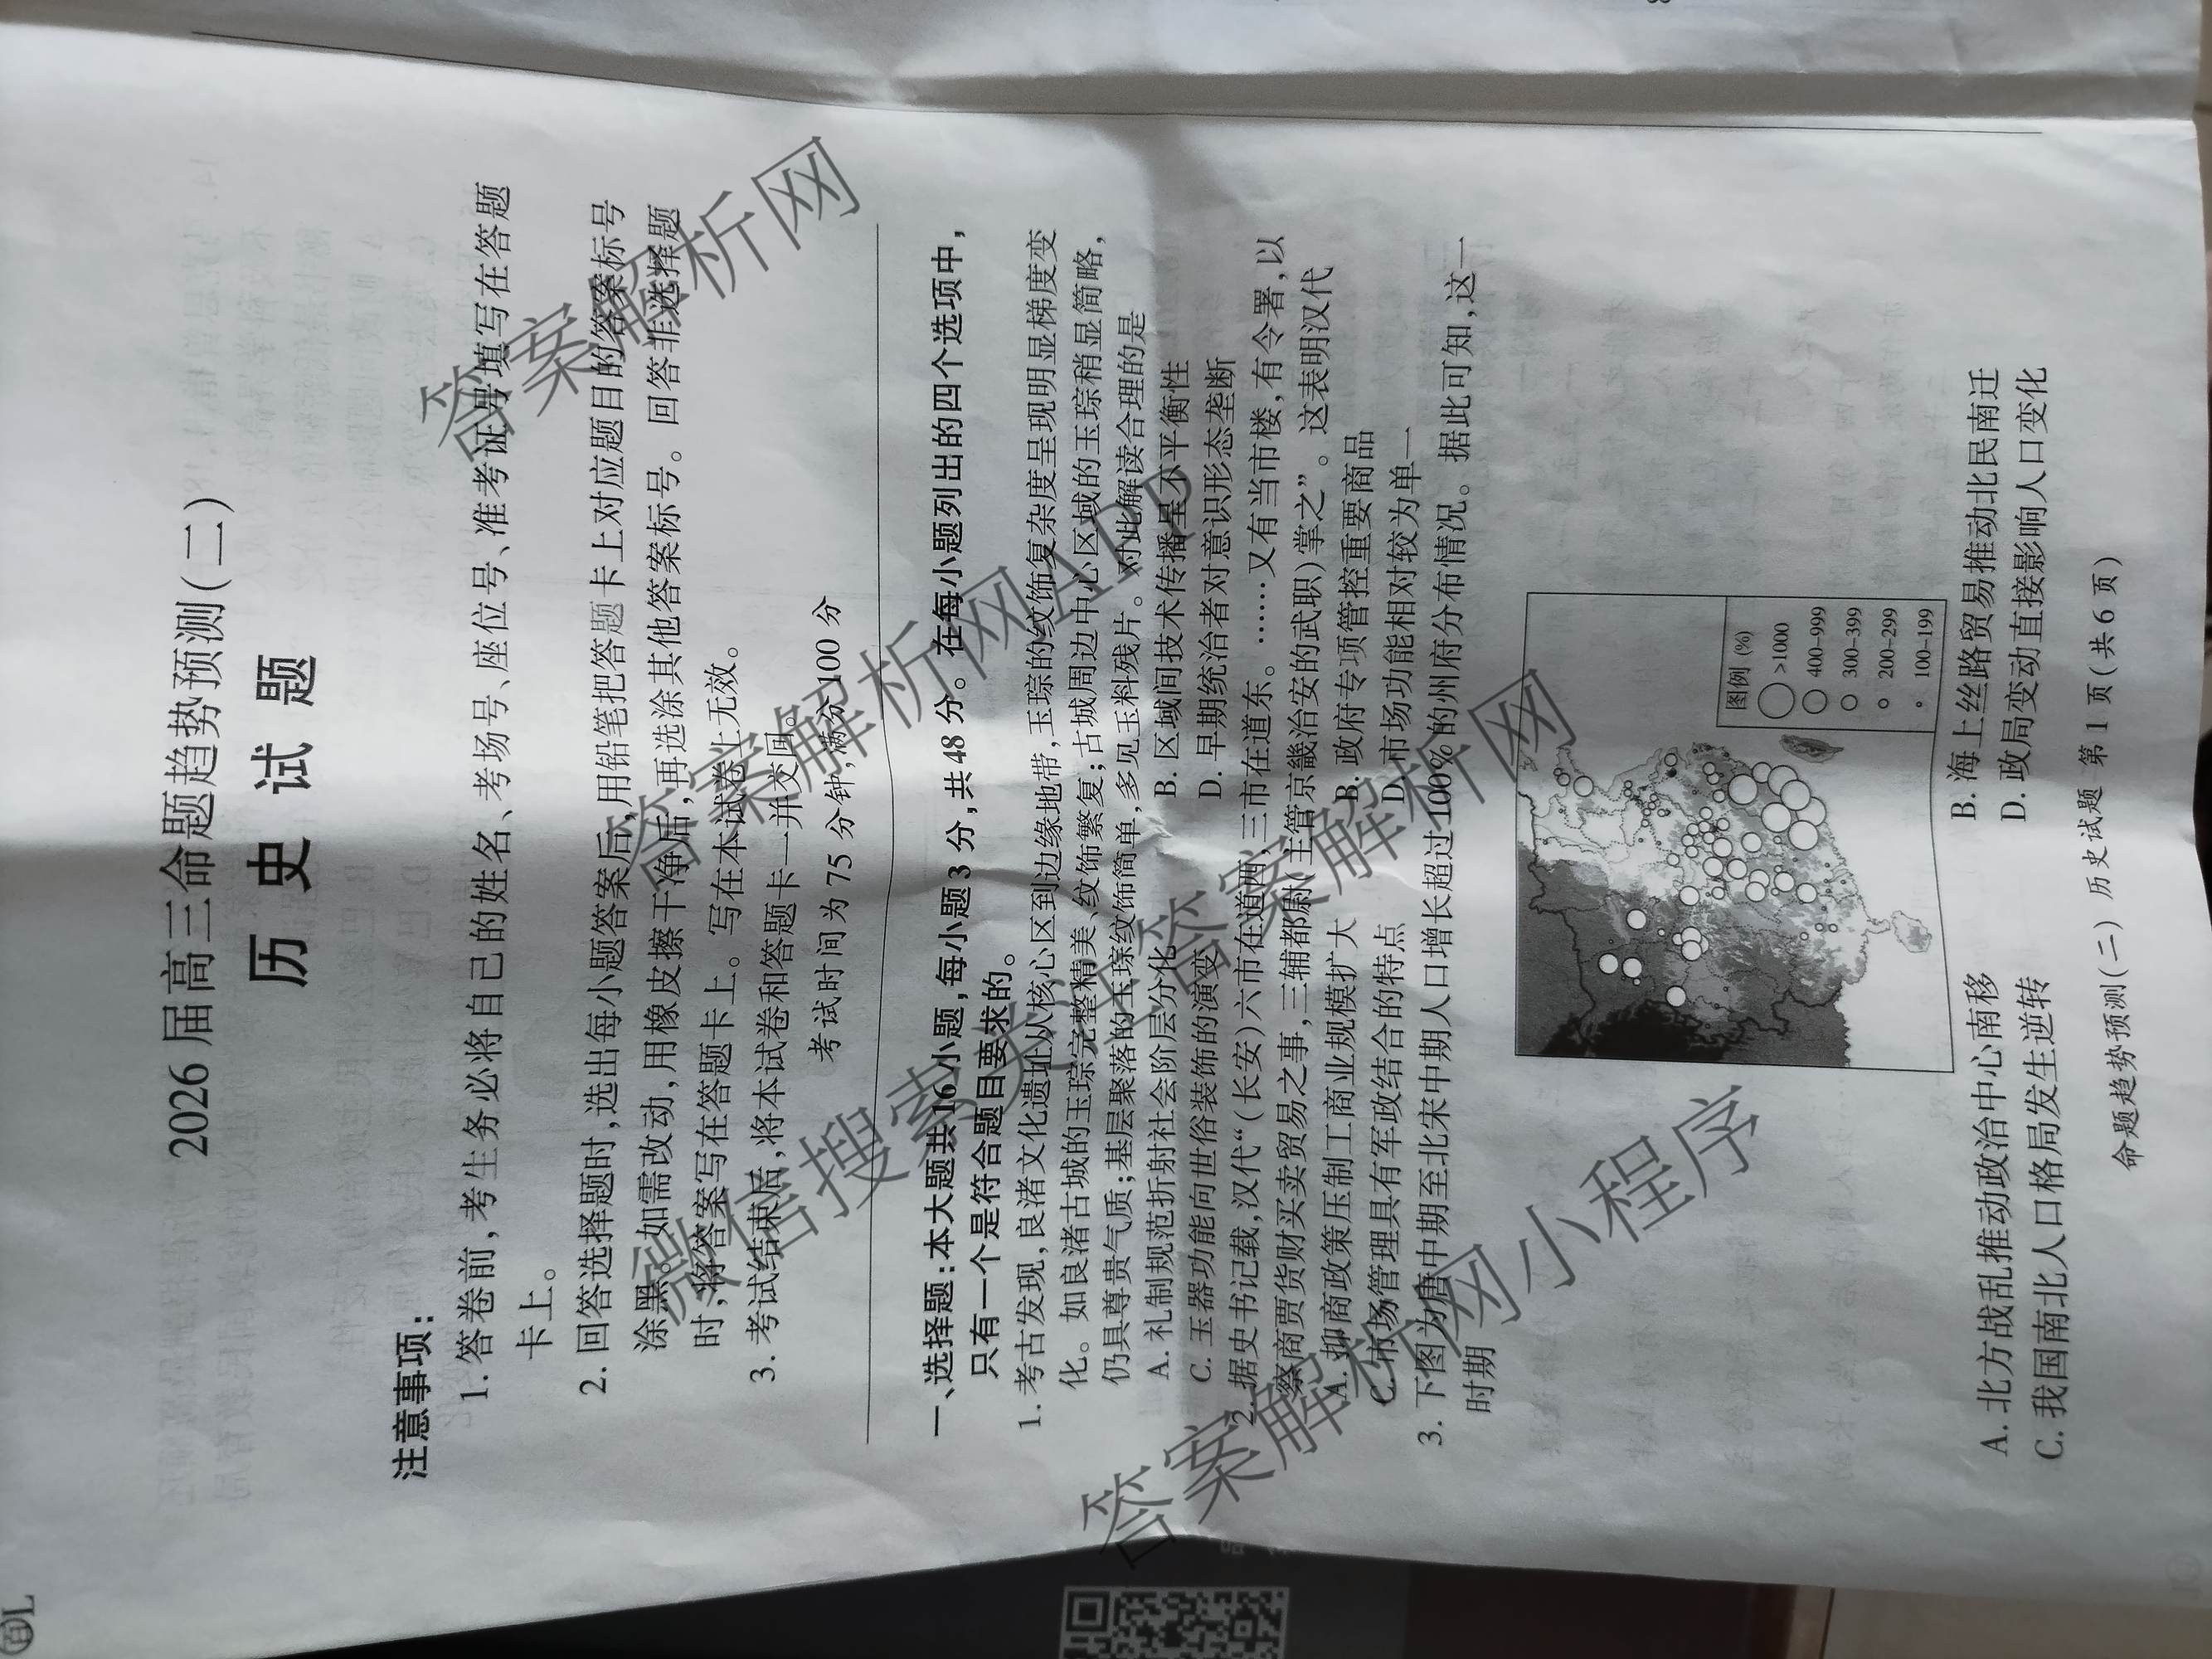 百L
2026届高三命题趋势预测(二)
历 史 试 题
注意事项:
1. 答卷前,考生务必将自己的姓名、考场号、座位号、准考证号填写在答题
卡上。
2. 回答选择题时,选出每小题答案后,用铅笔把答题卡上对应题目的答案标号
涂黑。如需改动,用橡皮擦干净后,再选涂其他答案标号。回答非选择题
时,将答案写在答题卡上。写在本试卷上无效。
3. 考试结束后,将本试卷和答题卡一并交回。
考试时间为75分钟,满分100分
一、选择题:本大题共16小题,每小题3分,共48分。在每小题列出的四个选项中,
只有一个是符合题目要求的。
1. 考古发现,良渚文化遗址从核心区到边缘地带,玉琮的纹饰复杂度呈现明显梯度变
化。如良渚古城的玉琮完整精美、纹饰繁复;古城周边中心区域的玉琮稍显简略,
仍具尊贵气质;基层聚落的玉琮纹饰简单,多见玉料残片。对此解读合理的是
A. 礼制规范折射社会阶层分化 B. 区域间技术传播呈不平衡性
C. 玉器功能向世俗装饰的演变 D. 早期统治者对意识形态垄断
2. 据史书记载,汉代“(长安)六市在道西,三市在道东。……又有当市楼,有令署,以
察商贾货财买卖贸易之事,三辅都尉(主管京畿治安的武职)掌之”。这表明汉代
A. 抑商政策压制工商业规模扩大 B. 政府专项管控重要商品
C. 市场管理具有军政结合的特点 D. 市场功能相对较为单一
3. 下图为唐中期至北宋中期人口增长超过100%的州府分布情况。据此可知,这一
时期
图例 (%)
>1000
400-999
300-399
200-299
100-199
A. 北方战乱推动政治中心南移 B. 海上丝路贸易推动北民南迁
C. 我国南北人口格局发生逆转 D. 政局变动直接影响人口变化
命题趋势预测(二) 历史试题 第1页(共6页)
答案解析网
答案解析网APP
微信搜索关注答案解析网
答案解析网小程序